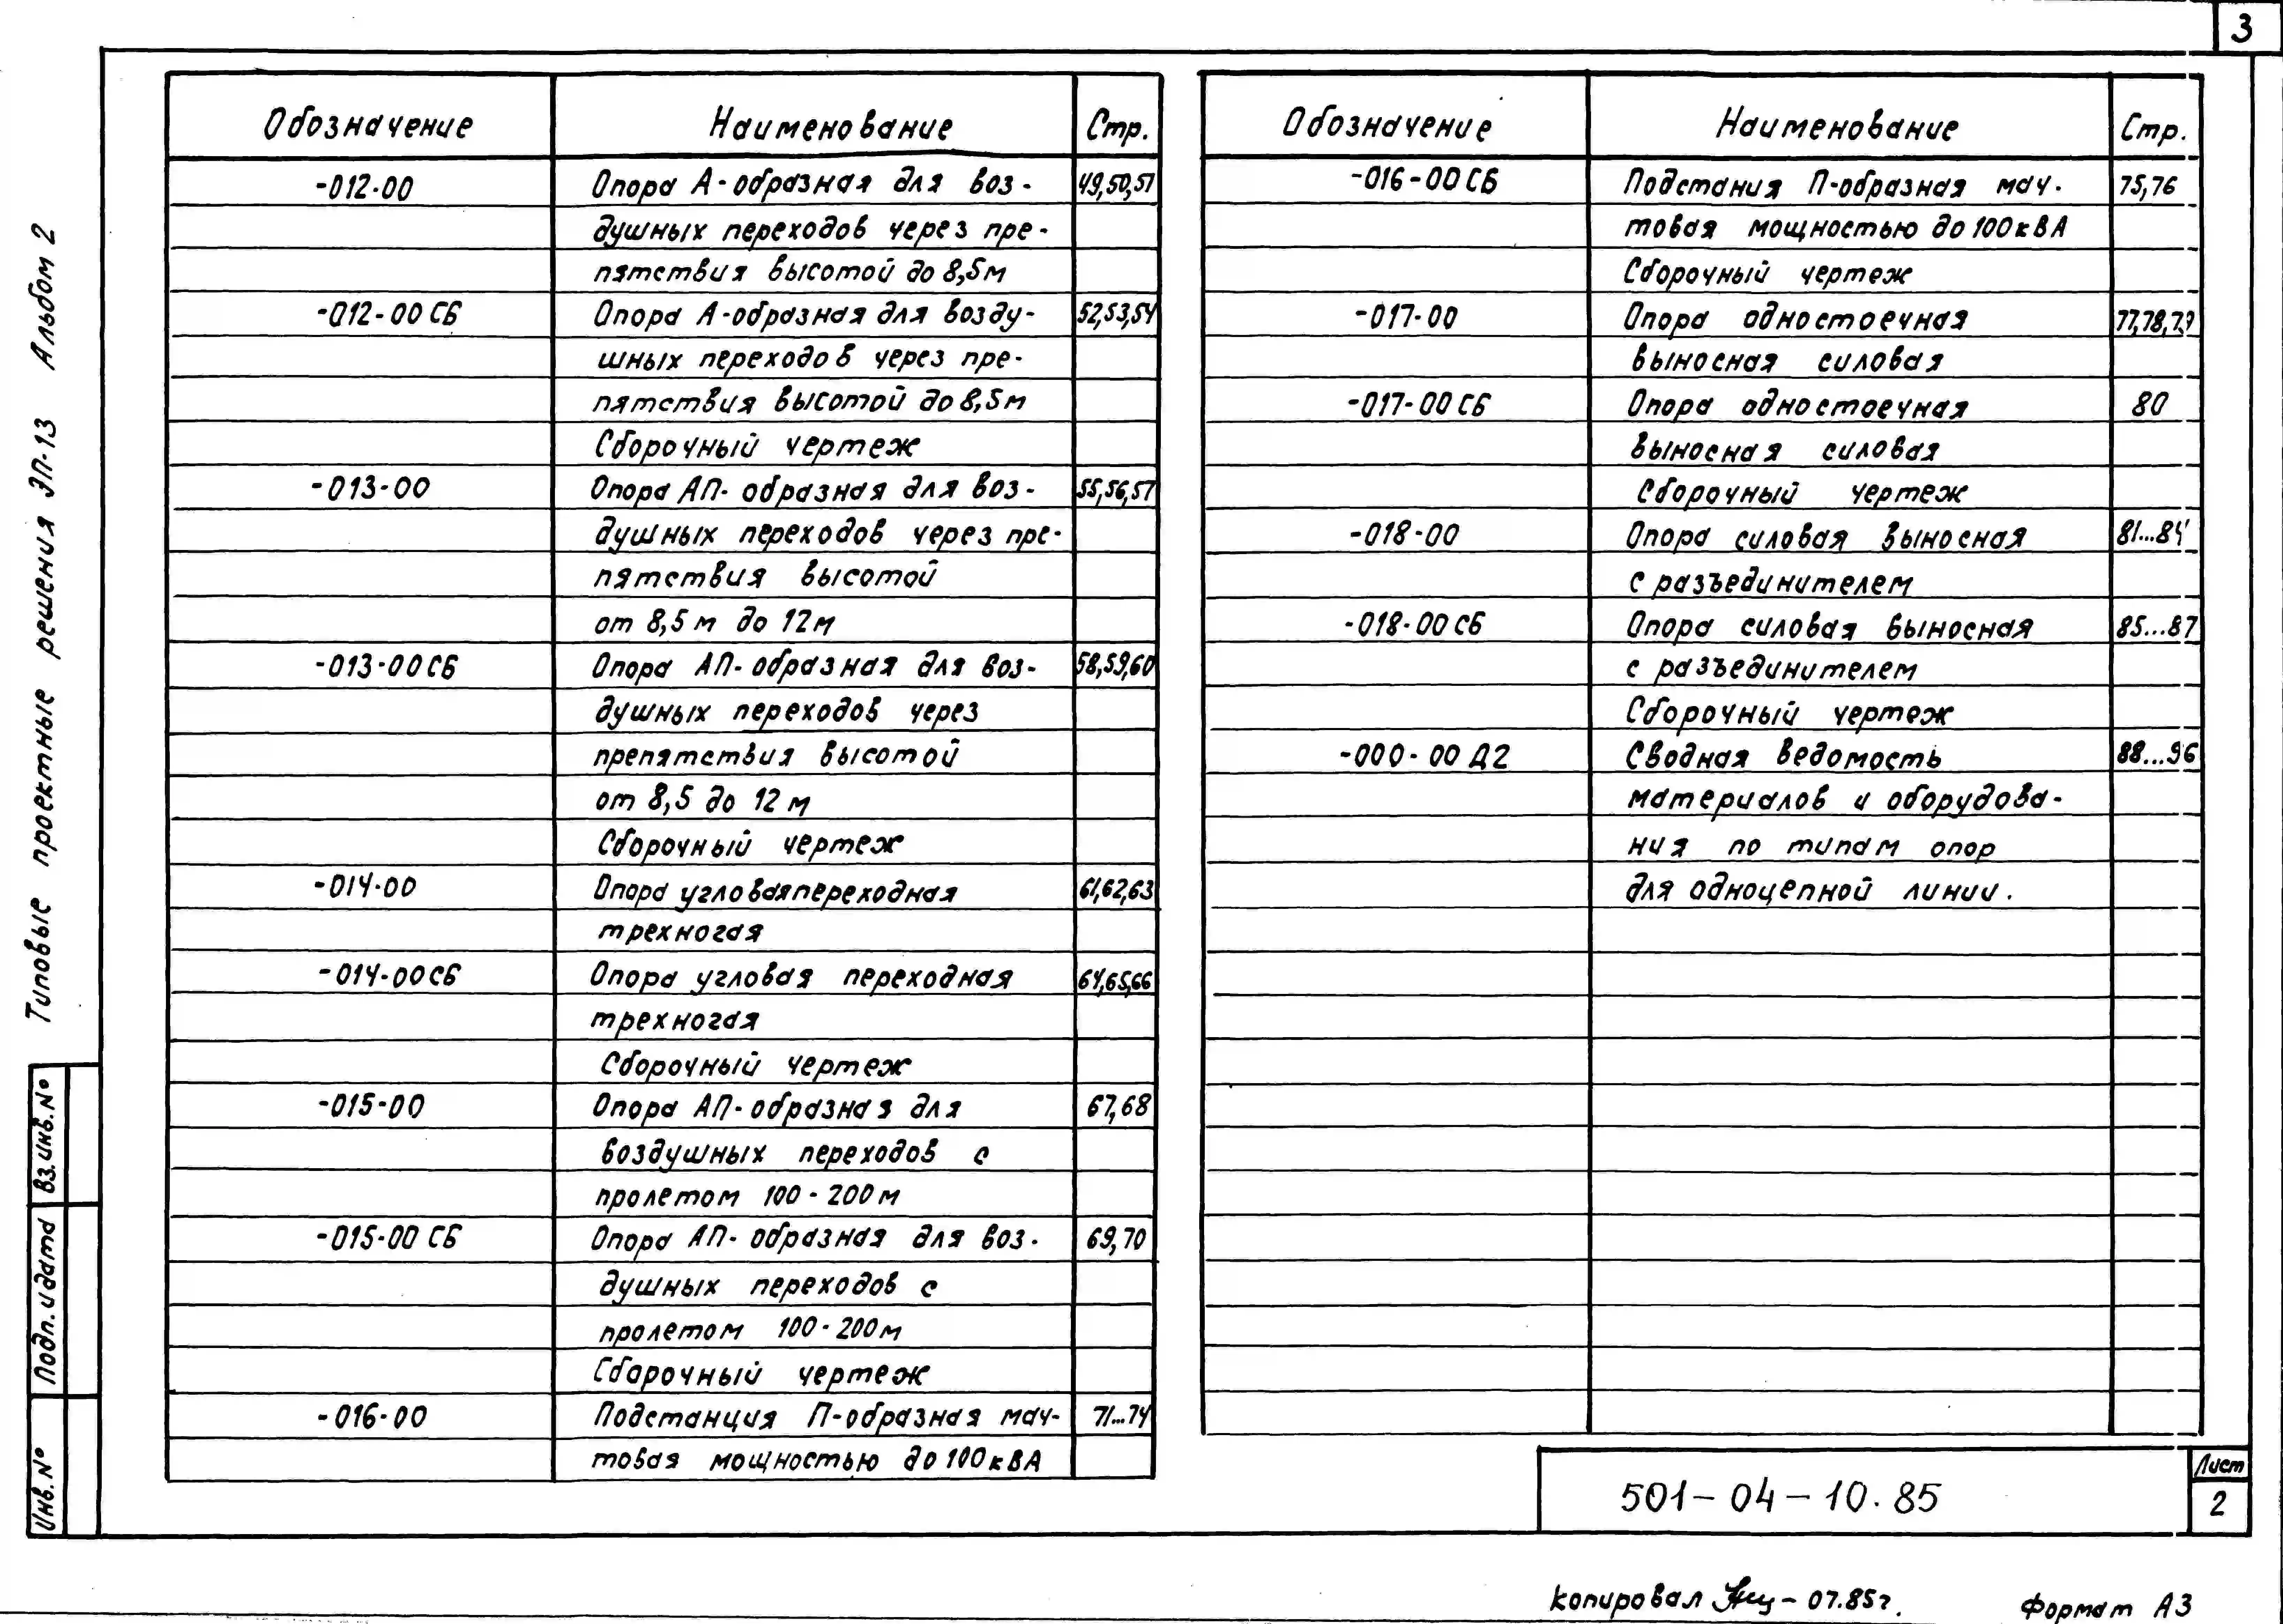 3
Обозначение Наименование Стр.
-012-00 Опора А-образная для воз- 49,50,51
душных переходов через пре-
пятствия высотой до 8,5м
-012-00 СБ Опора А-образная для возду- 52,53,54
шных переходов через пре-
пятствия высотой до 8,5м
Сборочный чертеж
-013-00 Опора АП-образная для воз- 55,56,57
душных переходов через пре-
пятствия высотой
от 8,5 м до 12м
-013-00СБ Опора АП-образная для воз- 58,59,60
душных переходов через
препятствия высотой
от 8,5 до 12 м
Сборочный чертеж
-014-00 Опора угловая переходная 61,62,63
трехногая
-014-00СБ Опора угловая переходная 64,65,66
трехногая
Сборочный чертеж
-015-00 Опора АП-образная для 67,68
воздушных переходов с
пролетом 100-200м
-015-00 СБ Опора АП-образная для воз- 69,70
душных переходов с
пролетом 100-200м
Сборочный чертеж
-016-00 Подстанция П-образная мач- 71...74
товая мощностью до 100кВА
Обозначение Наименование Стр.
-016-00СБ Подстания П-образная мач- 75,76
товая мощностью до 100кВА
Сборочный чертеж
-017-00 Опора одностоечная 77,78,79
выносная силовая
-017-00СБ Опора одностоечная 80
выносная силовая
Сборочный чертеж
-018-00 Опора силовая выносная 81...84
с разъединителем
-018-00СБ Опора силовая выносная 85...87
с разъединителем
Сборочный чертеж
-000-00 Д2 Сводная ведомость 88...96
материалов и оборудова-
ния по типам опор
для одноцепной линии.
Типовые проектные решения ЭП-13 Альбом 2
Вз.инв.№
Подп. и дата
Инв.№
501-04-10.85
Лист
2
копировал 07.85г.
Формат А3